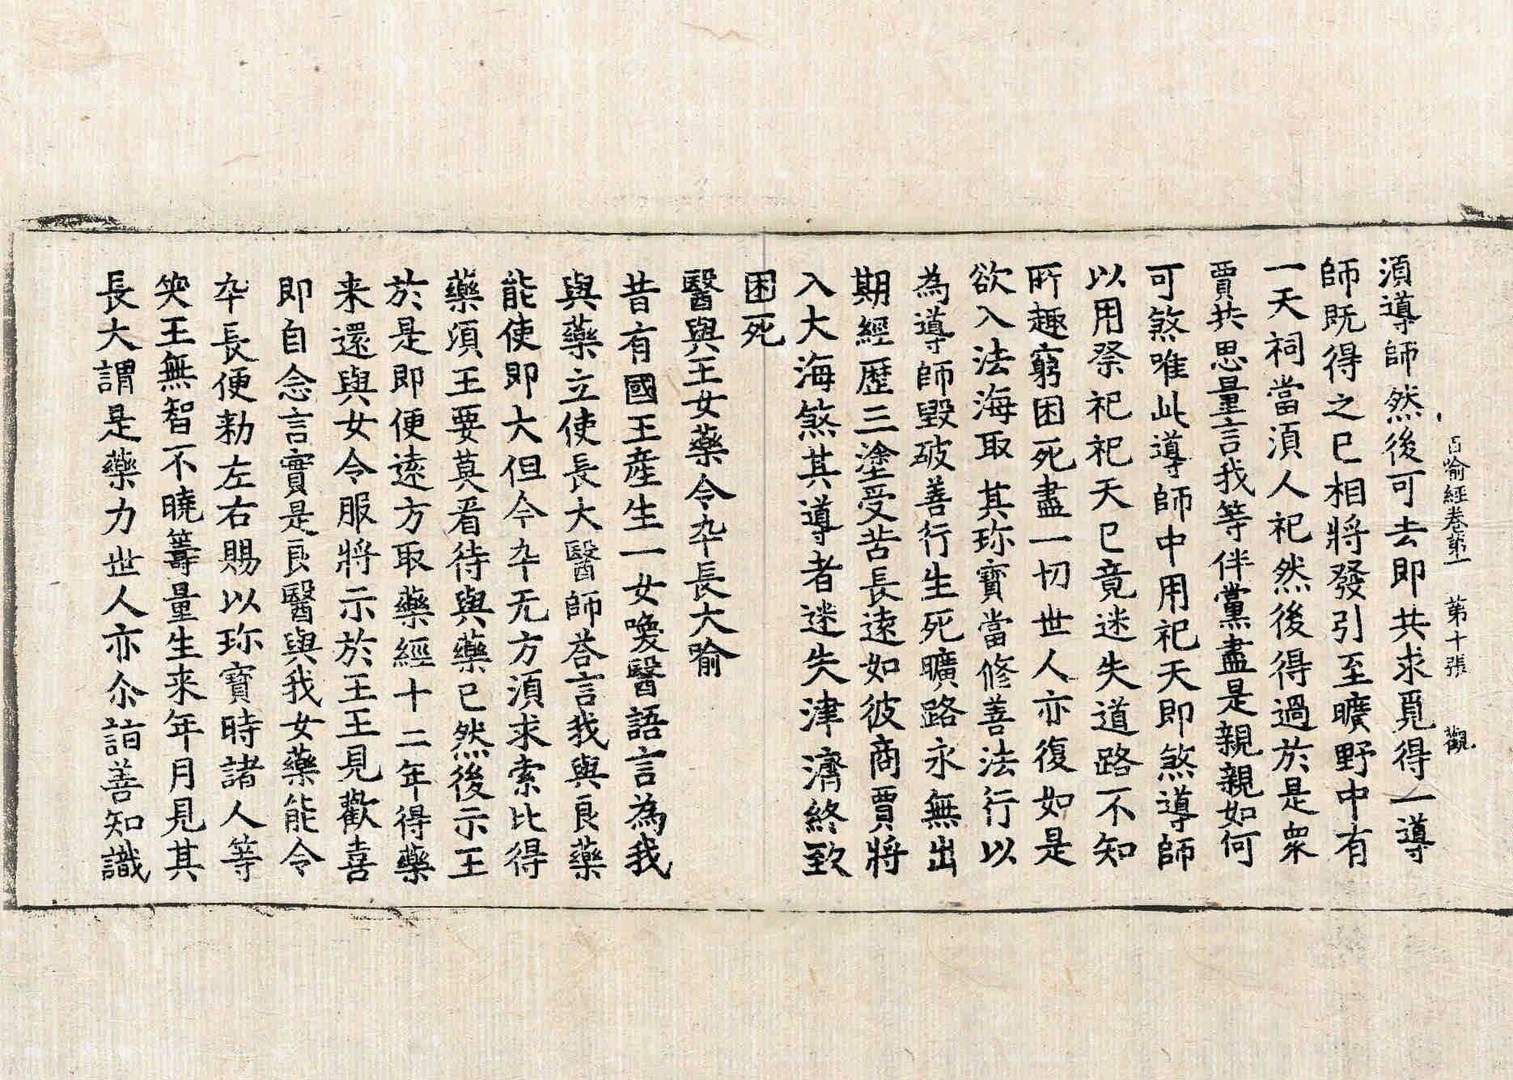 百喻經卷第一　第十張　觀
須導師然後可去即共求覓得一導
師既得之已相將發引至曠野中有
一天祠當須人祀然後得過於是衆
賈共思量言我等伴黨盡是親親如何
可煞唯此導師中用祀天即煞導師
以用祭祀祀天已竟迷失道路不知
所趣窮困死盡一切世人亦復如是
欲入法海取其珎寶當修善法行以
為導師毀破善行生死曠路永無出
期經歷三塗受苦長遠如彼商賈將
入大海煞其導者迷失津濟終致
困死
醫與王女藥令卒長大喻
昔有國王產生一女喚醫語言為我
與藥立使長大醫師荅言我與良藥
能使即大但今卒无方須求索比得
藥須王要莫看待與藥已然後示王
於是即便遠方取藥經十二年得藥
来還與女令服將示於王王見歡喜
即自念言實是良醫與我女藥能令
卒長便勑左右賜以珎寶時諸人等
笑王無智不曉籌量生来年月見其
長大謂是藥力世人亦尒詣善知識